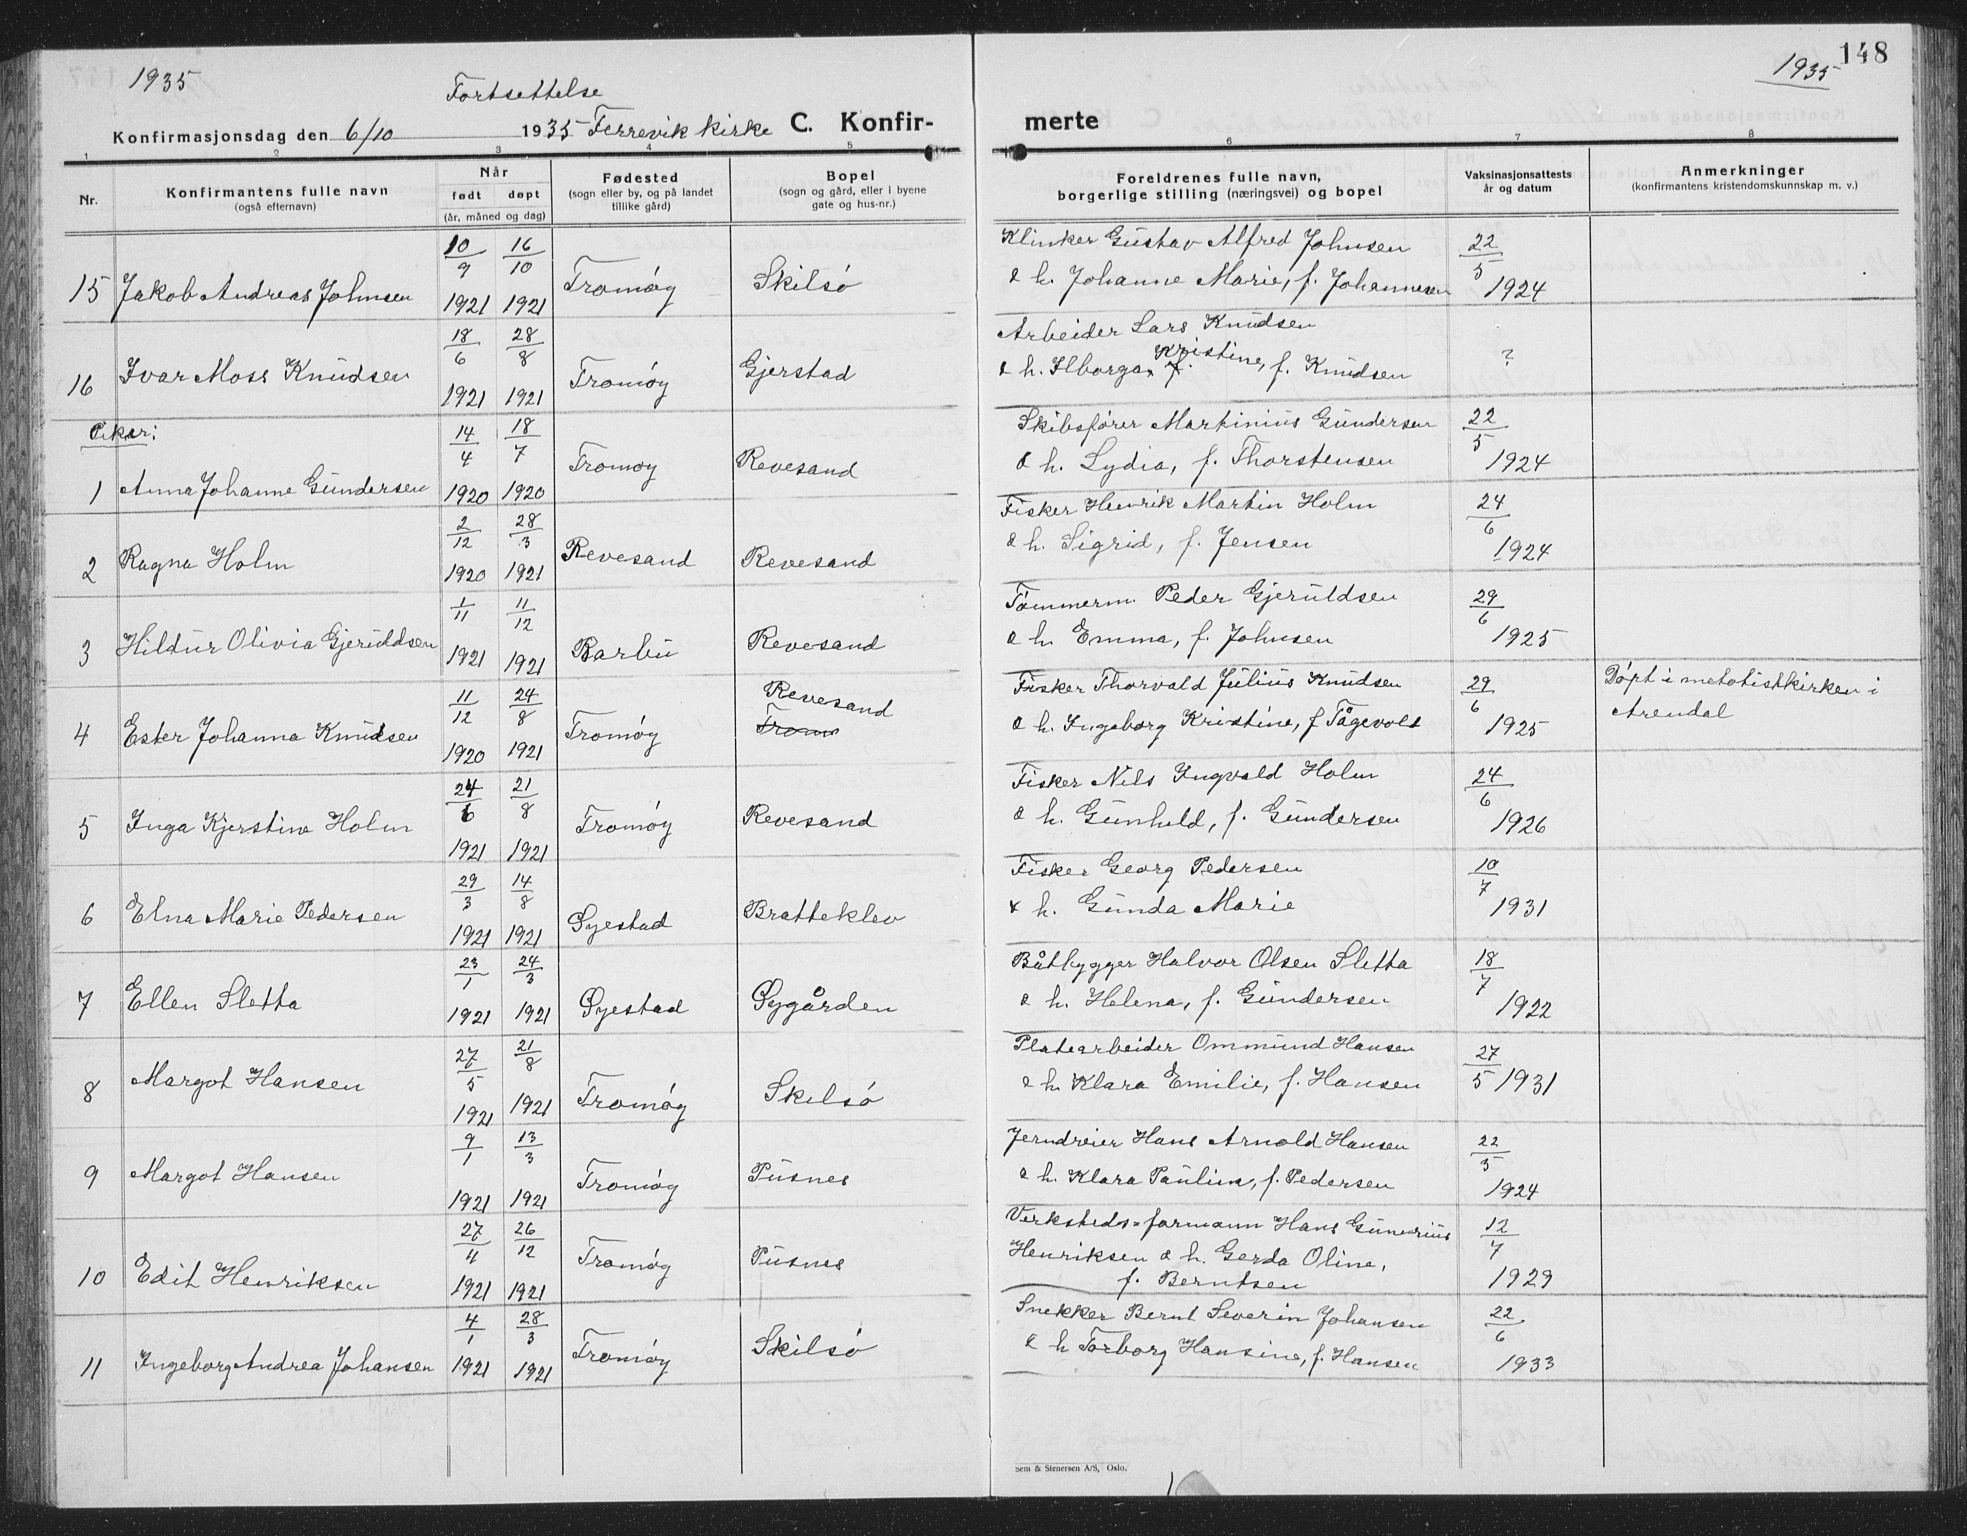 1935
Fortsettelse
Konfirmasjonsdag den 6/10 1935 Færrevik kirke C. Konfir-
merte
1935
148
1 2 3 4 5 6 7 8
Nr.
Konfirmantens fulle navn
(også efternavn)
Når
født døpt
(år, måned og dag)
Fødested
(sogn eller by, og på landet
tillike gård)
Bopel
(sogn og gård, eller i byene
gate og hus-nr.)
Foreldrenes fulle navn,
borgerlige stilling (næringsvei) og bopel
Vaksinasjonsattests
år og datum
Anmerkninger
(konfirmantens kristendomskunnskap m. v.)
15 Jakob Andreas Johnsen 10/9 1921 16/10 1921 Tromøy Skilsø
Klinker Gustav Alfred Johnsen 22/5
& h. Johanne Marie, f. Johannesen 1924
16 Ivar Moss Knudsen 18/6 1921 28/8 1921 Tromøy Gjerstad
Arbeider Lars Knudsen
& h. Ilborga Kristine, f. Knudsen ?
Piker:
1 Anna Johanne Gundersen 14/4 1920 18/7 1920 Tromøy Revesand
Skibsfører Martinius Gundersen 22/5
& h. Lydia, f. Thorstensen 1924
2 Ragna Holm 2/12 1920 28/3 1921 Revesand Revesand
Fisker Henrik Martin Holm 24/6
& h. Sigrid, f. Jensen 1924
3 Hildur Olivia Gjeruldsen 1/11 1921 11/12 1921 Barbu Revesand
Tømmerm. Peder Gjeruldsen 29/6
& h. Emma, f. Johnsen 1925
4 Ester Johanna Knudsen 11/12 1920 24/8 1921 Tromøy Revesand
Trom
Fisker Thorvald Julius Knudsen 29/6 Døpt i metotistkirken i
& h. Ingeborg Kristine, f. Tågevolt 1925 Arendal
5 Inga Kjerstine Holm 24/6 1921 21/8 1921 Tromøy Revesand
Fisker Nils Ingvald Holm 24/6
& h. Gunhild, f. Gundersen 1926
6 Elna Marie Pedersen 29/3 1921 14/8 1921 Øyestad Bratteklev
Fisker Georg Pedersen 10/7
& h. Gunda Marie 1931
7 Ellen Sletta 23/1 1921 24/3 1921 Øyestad Øygården
Båtbygger Halvor Olsen Sletta 18/7
& h. Helena, f. Gundersen 1922
8 Margot Hansen 27/5 1921 21/8 1921 Tromøy Skilsø
Platearbeider Ommund Hansen 27/5
& h. Klara Emilie, f. Hansen 1931
9 Margot Hansen 9/1 1921 13/3 1921 Tromøy Pusnes
Jerndreier Hans Arnold Hansen 22/5
& h. Klara Pauline, f. Pedersen 1924
10 Edit Henriksen 27/4 1921 26/12 1921 Tromøy Pusnes
Verksteds-formann Hans Gunerius 12/7
Henriksen & h. Gerda Oline, 1929
f. Berntsen
11 Ingeborg Andrea Johansen 4/1 1921 28/3 1921 Tromøy Skilsø
Snekker Bernt Severin Johansen 22/6
& h Torborg Hansine, f. Hansen 1933
Sem & Stenersen A/S, Oslo.